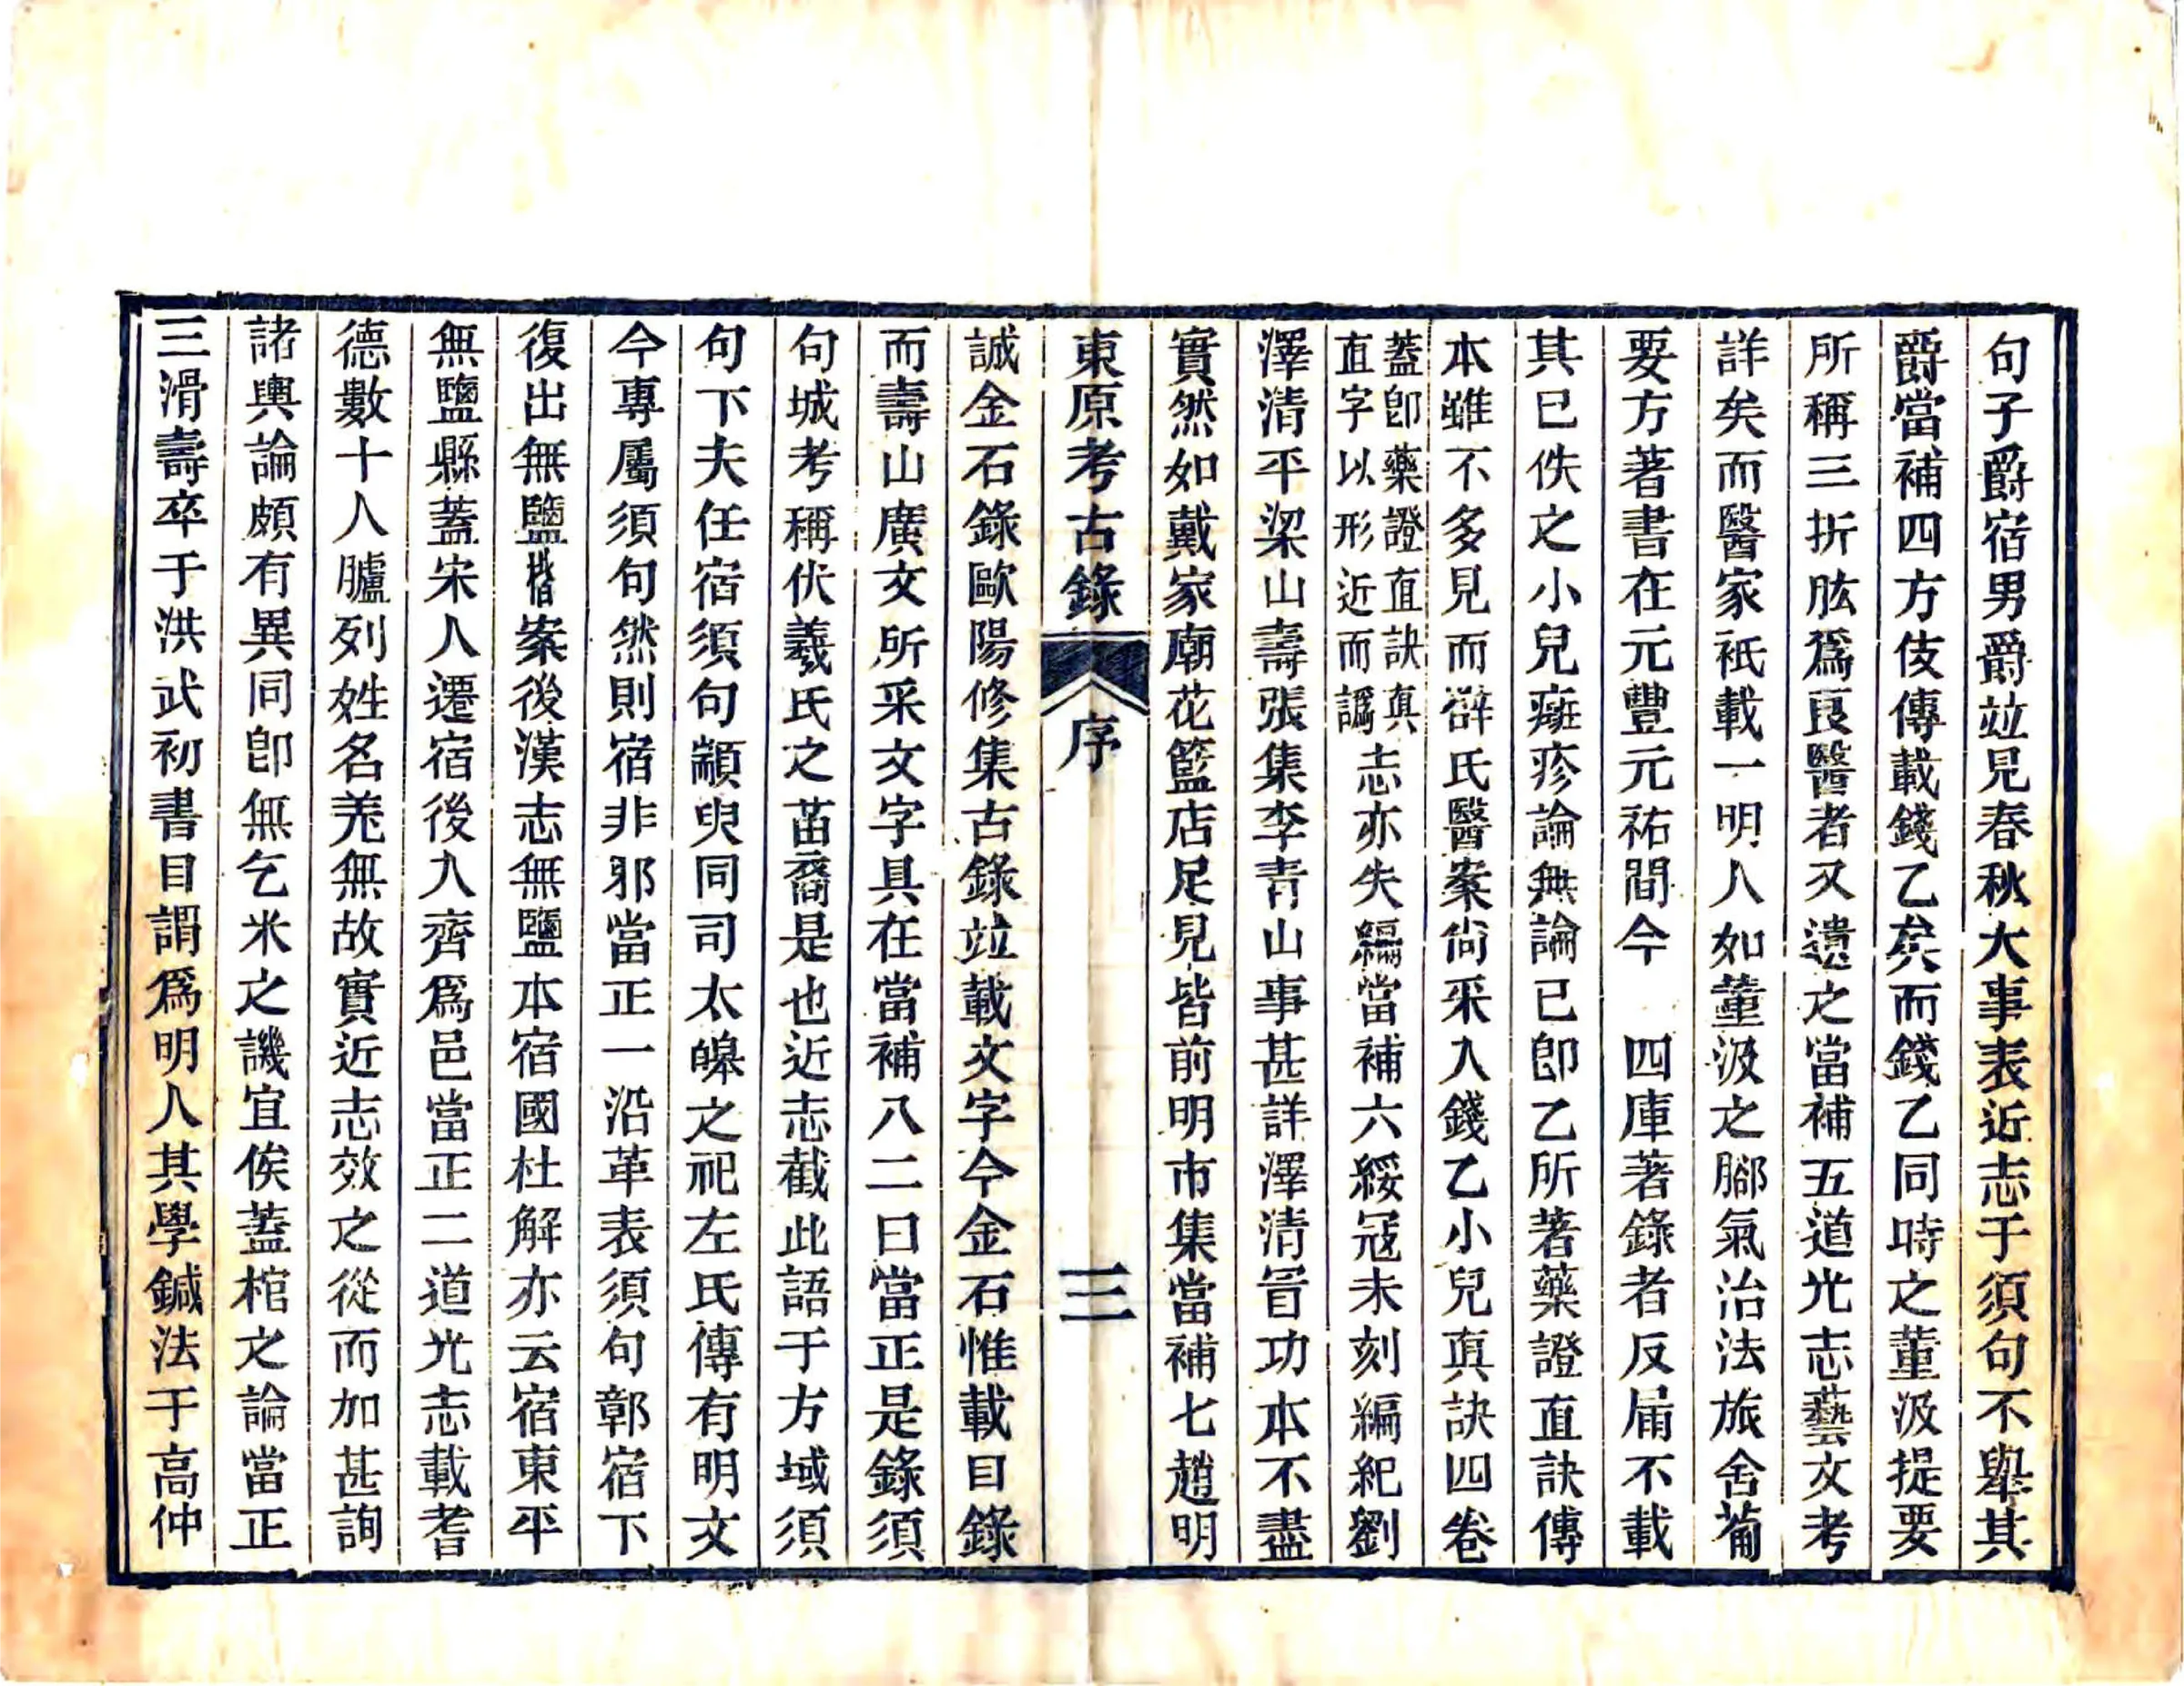 句子爵宿男爵竝見春秋大事表近志于須句不舉其
爵當補四方伎傳載錢乙矣而錢乙同時之董汲提要
所稱三折肱爲良醫者又遺之當補五道光志藝文考
詳矣而醫家衹載一明人如董汲之腳氣治法旅舍葡
要方著書在元豐元祐間今　四庫著錄者反屚不載
其已佚之小兒癍疹論無論已卽乙所著藥證直訣傳
本雖不多見而薛氏醫案尙采入錢乙小兒眞訣四卷
蓋卽藥證直訣眞
直字以形近而譌
志亦失編當補六綏寇未刻編紀劉
澤清平梁山壽張集李青山事甚詳澤清冒功本不盡
實然如戴家廟花籃店足見皆前明市集當補七趙明
東原考古錄　序　三
誠金石錄歐陽修集古錄竝載文字今金石惟載目錄
而壽山廣文所采文字具在當補八二曰當正是錄須
句城考稱伏羲氏之苗裔是也近志截此語于方域須
句下夫任宿須句顓臾同司太皞之祀左氏傳有明文
今專屬須句然則宿非邪當正一沿革表須句鄣宿下
復出無鹽案後漢志無鹽本宿國杜解亦云宿東平
無鹽縣蓋宋人遷宿後入齊爲邑當正二道光志載耆
德數十人臚列姓名羌無故實近志效之從而加甚詢
諸輿論頗有異同卽無乞米之譏宜俟蓋棺之論當正
三滑壽卒于洪武初書目謂爲明人其學鍼法于高仲